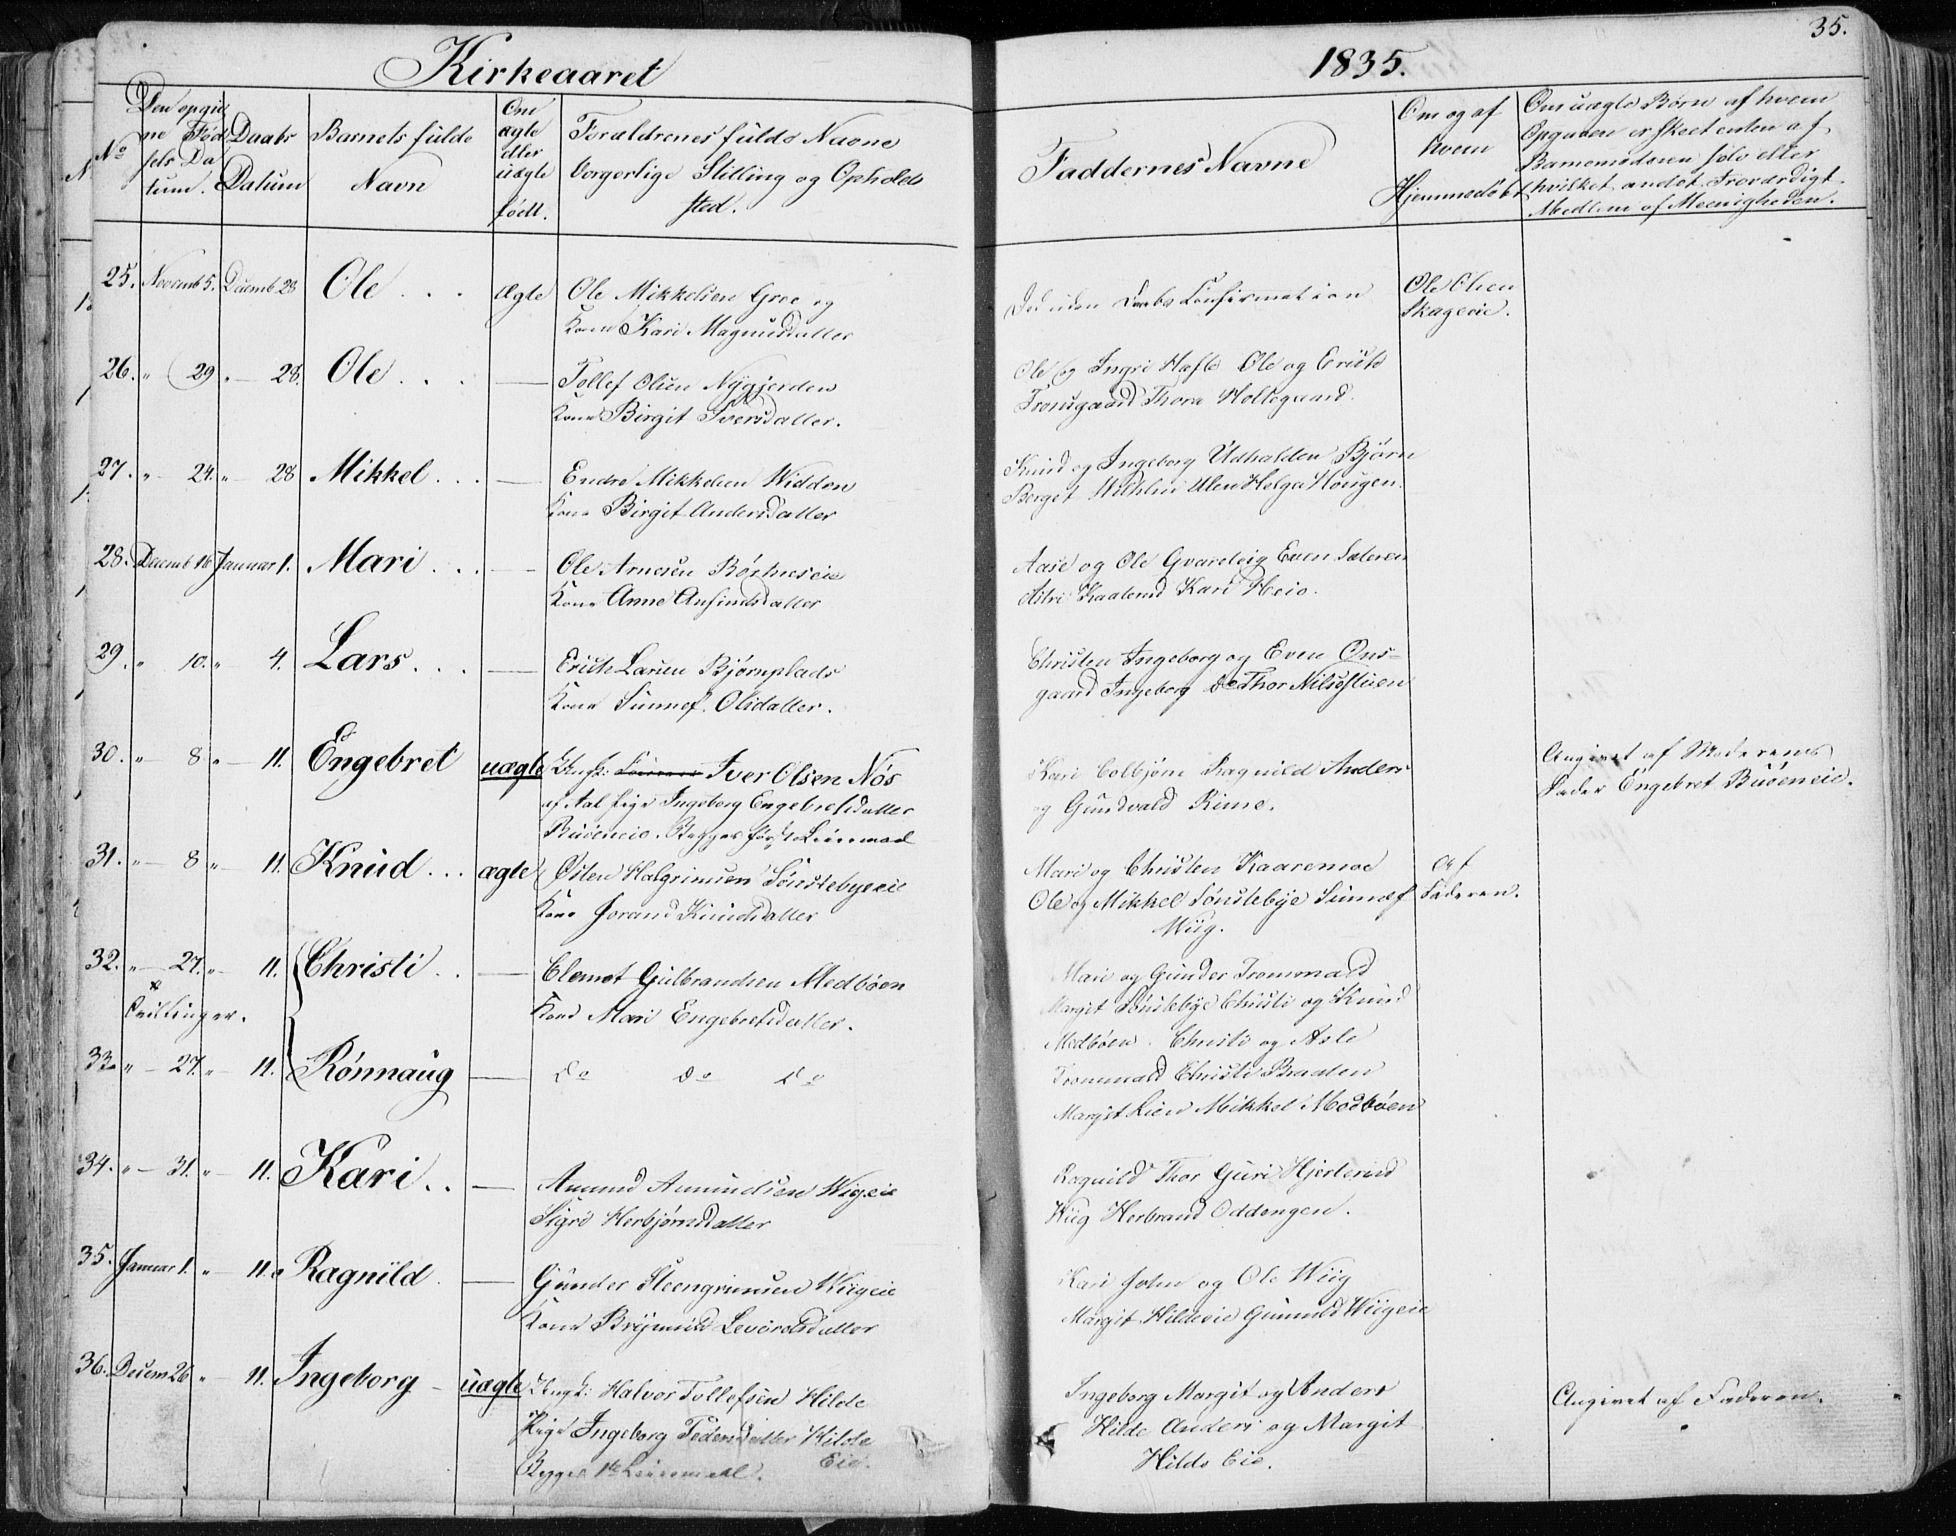 Kirkeaaret
1835.
35.
No
Den opgivne Fødsels Datum.
Daabs Datum
Barnets fulde Navn
Om ægte eller uægte født.
Forældrenes fulde Navne borgerlige Stilling og Opholdssted.
Faddernes Navne
Om og af hvem Hjemmedøbt
Om uægte Børn af hvem Opgaven er skeet enten af Barnemoderen selv eller hvilket andet Troværdigt Medlem af Meenigheden.
25. Novemb 5. Decemb 28 Ole . . . ægte Ole Mikkelsen Gree og
Kone Kari Magnusdatter
Død uden Daabs Confirmation
Ole Olsen
Skageeie.
26. " 29 " — 28. Ole . . . — Tollef Olsen Nÿgjerden
Kone Birgit Iversdatter.
Ole og Ingri Hafle Ole og Erich
Tronsgaard Thora Holtegaard.
27. " — 24. " — 28 Mikkel . . . — Endre Mikkelsen Widden
Kone Birgit Andersdatter
Knud og Ingeborg Udhalden Bjørn
Berget Ulen Helga Hougen.
28. Decemb 16 Januar 1. Mari . . . — Ole Arnesen Børtneseie
Kone Anne Anfindsdatter
Aase og Ole Even Sateren
Astri Kaalerud Kari Heio.
29. " 10. " 4. Lars . . . — Erich Larsen Bjørnplads
Kone Sunnef. Olsdatter.
Christen Ingeborg og Even Ons=
gaard Ingeborg Do Thor Nilsestuen
30. " 8 " — 11. Engebret uægte Ungk: Iver Olsen Nös
af Aal Pige Ingeborg Engebretsdatter
Büöeneie. Begges første Leiermaal
Kari Colbjørn Ragnild Anders
og Gundvald Rime.
Angivet af Moderens
Fader Engebret Büöeneie.
31. " — 8 " — 11. Knud . . . ægte Østen Halgrimsen Sönstebyeeie
Kone Jorand Knudsdatter
Mari og Christen Kaaremoe
Ole og Mikkel Sönstebye Sunnef
Wiig.
Af
Faderen.
32. " — 27. " — 11. Christi . . — Clemet Gulbrandsen Medböen
Kone Mari Engebretsdatter.
Tvillinger.
Mari og Gunder Trommald
Margit Sönstebye Christi og Knud
Medböen. Christi og Asle
33. " — 27. " — 11. Rønnaug — do do do
Trommald Christi Braaten
Margit Lien Mikkel Medböen
34. " — 31. " — 11. Kari . . — Amund Amundsen Wigeie
Sigri Herbjørnsdatter
Ragnild Thor Guri Hjerterud
Wiig Herbrand Oddengen.
35. Januar 1. " — 11. Ragnild. — Gunder Steengrimsen Wiigeie
Kone Levordsdatter
Kari John og Ole Wiig
Margit Hildeeie Gunnild Wiigeie
36. Decem 26 " — 11. Ingeborg - uægte Ungk: Halvor Tollefsen Hilde
Pige Ingeborg Pedersdatter Hilde
Eie.
Begges 1te Leiermaal.
Ingeborg Margit og Anders
Hilde Anders og Margit
Hilde Eie.
Angivet af Faderen.